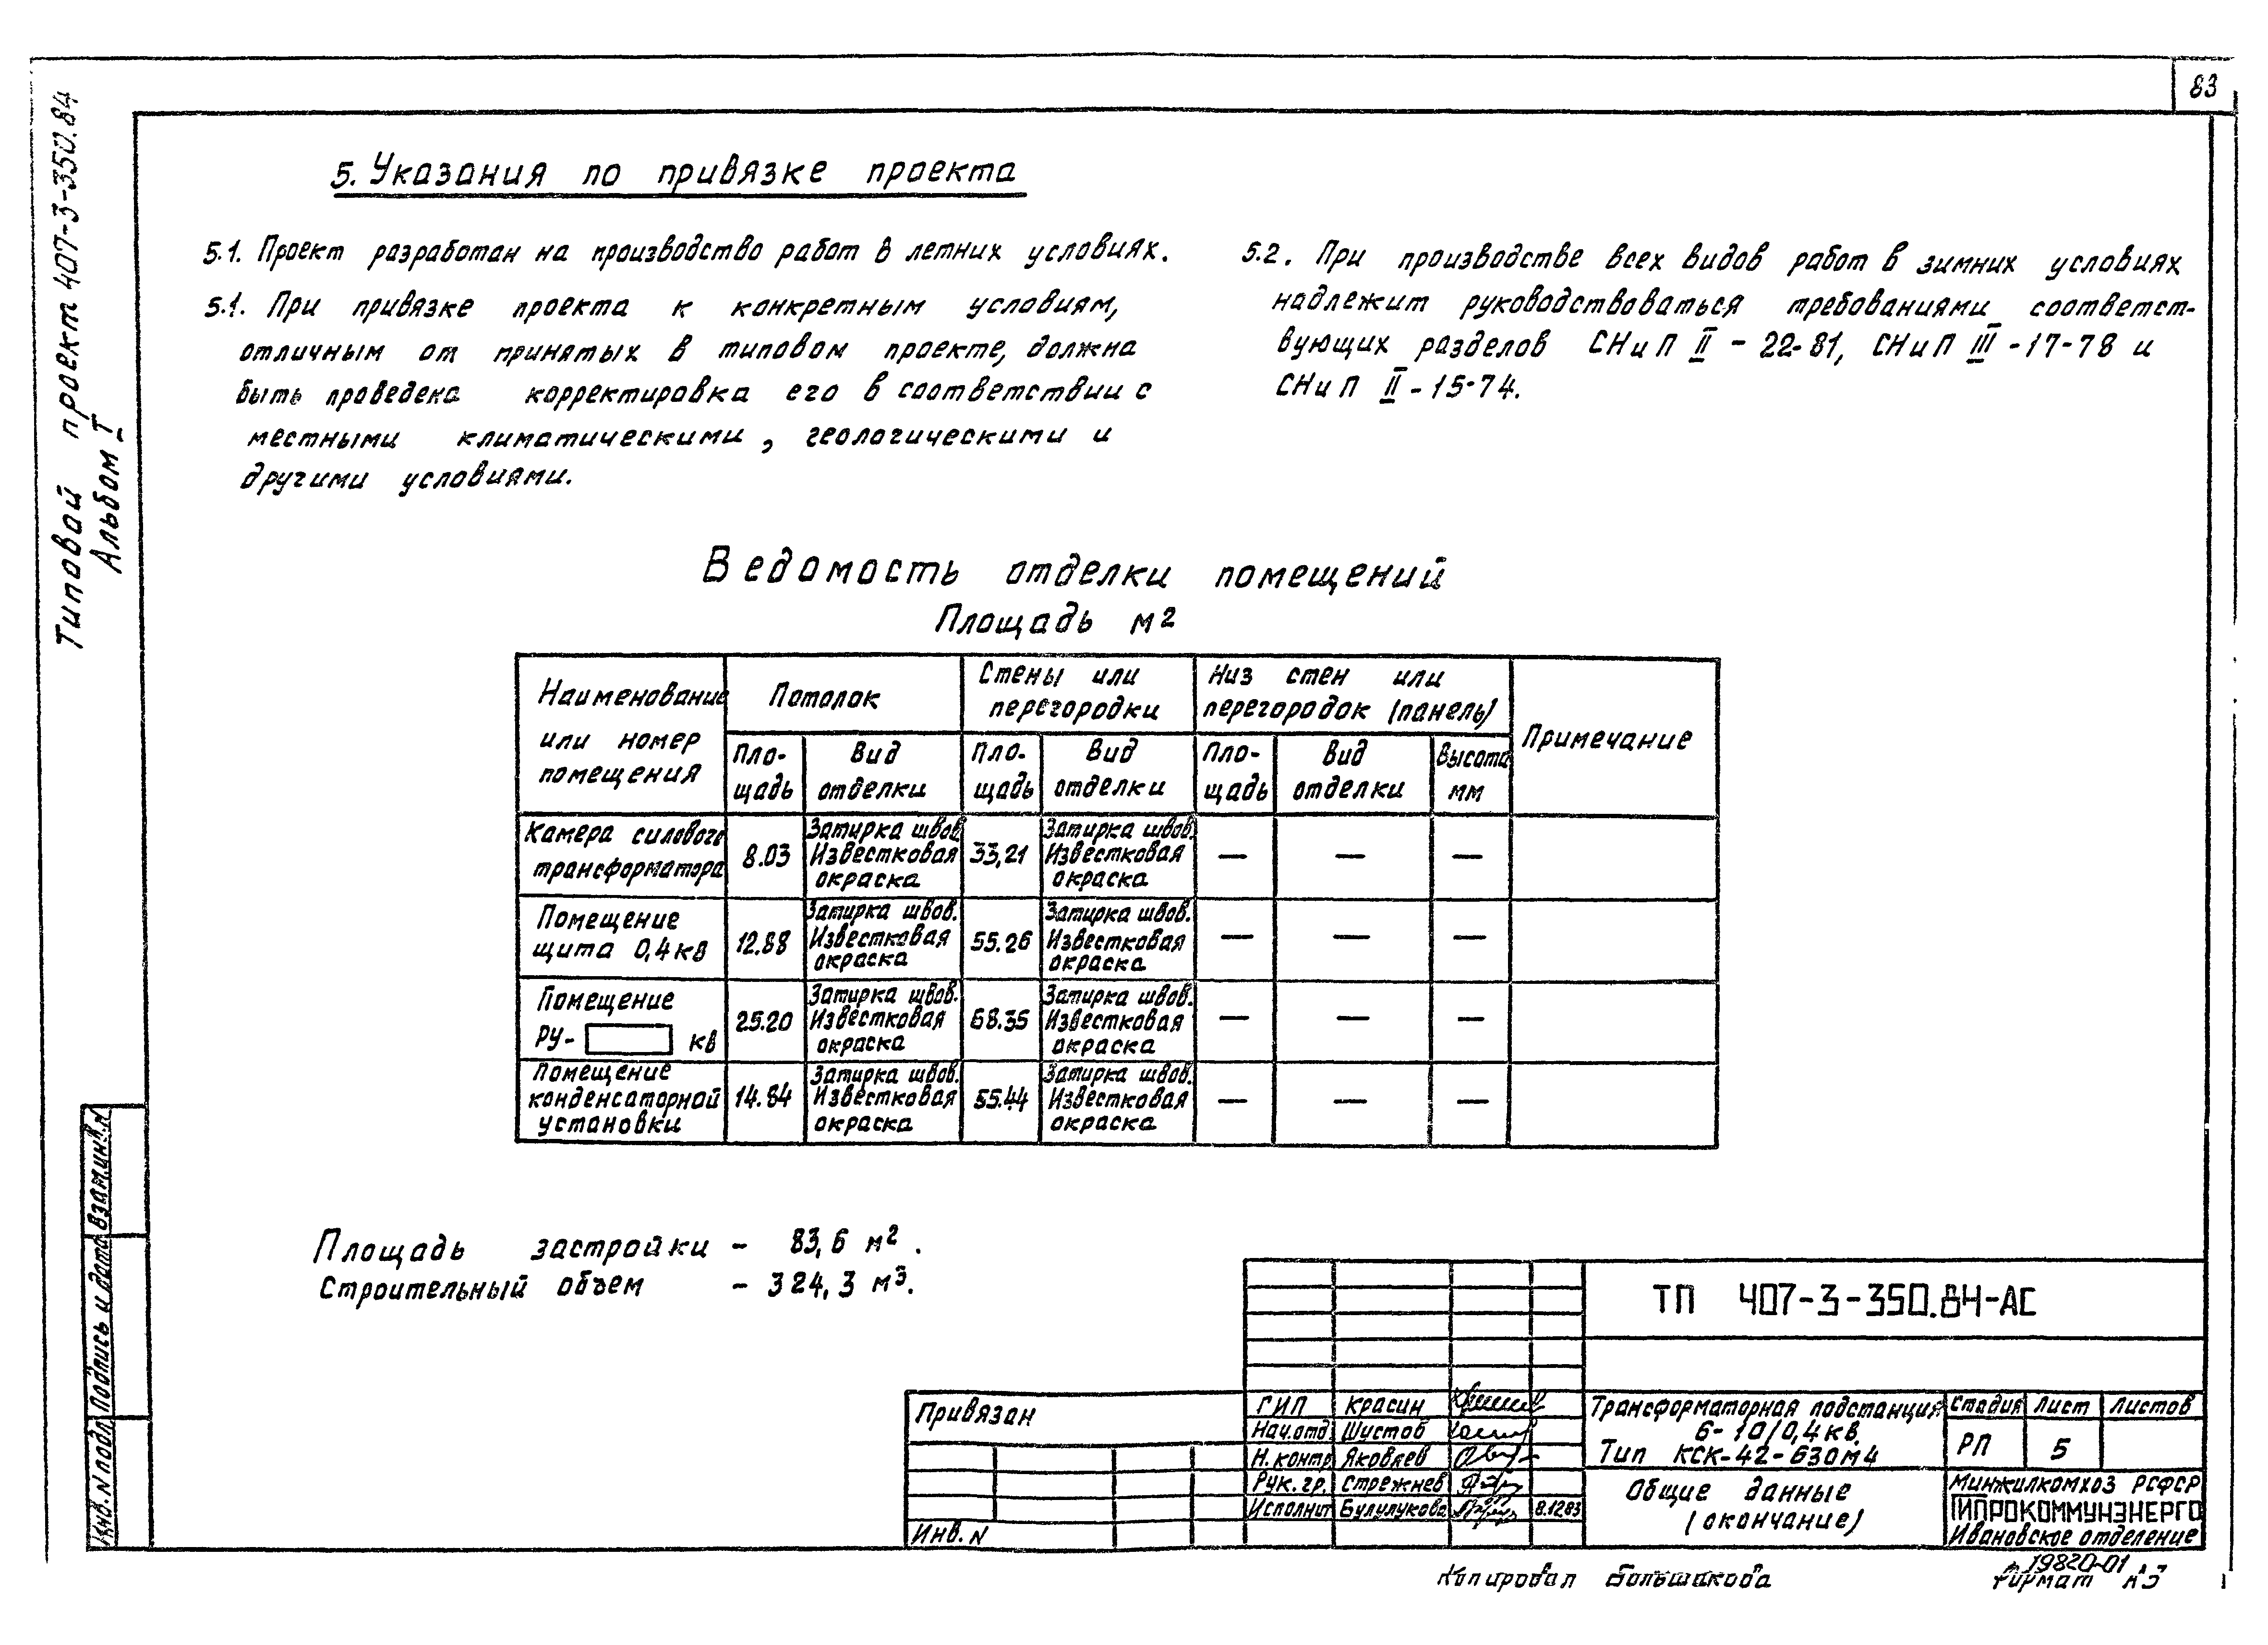 83
Типовой проект 407-3-350.84
Альбом I
5. Указания по привязке проекта
5.1. Проект разработан на производство работ в летних условиях.
5.1. При привязке проекта к конкретным условиям,
отличным от принятых в типовом проекте, должна
быть проведена корректировка его в соответствии с
местными климатическими, геологическими и
другими условиями.
5.2. При производстве всех видов работ в зимних условиях
надлежит руководствоваться требованиями соответст-
вующих разделов СНиП II-22-81, СНиП III-17-78 и
СНиП II-15-74.
Ведомость отделки помещений
Площадь м2
Наименование или номер помещения | Потолок | Стены или перегородки | Низ стен или перегородок (панель) | Примечание
Пло-щадь | Вид отделки | Пло-щадь | Вид отделки | Пло-щадь | Вид отделки | Высота мм
Камера силового трансформатора | 8.03 | Затирка швов. Известковая окраска | 33,21 | Затирка швов. Известковая окраска | — | — | —
Помещение щита 0,4кв | 12.88 | Затирка швов. Известковая окраска | 55.26 | Затирка швов. Известковая окраска | — | — | —
Помещение РУ- кв | 25.20 | Затирка швов. Известковая окраска | 68.35 | Затирка швов. Известковая окраска | — | — | —
Помещение конденсаторной установки | 14.84 | Затирка швов. Известковая окраска | 55.44 | Затирка швов. Известковая окраска | — | — | —
Площадь застройки - 83,6 м2.
Строительный объем - 324,3 м3.
Взам.инв.N
Подпись и дата
Инв.N подл.
Привязан
Инв.N
ГИП Красин
Нач.отд. Шустов
Н.контр. Яковлев
Рук.гр. Стрежнев
Исполнит. Булулукова 8.12.83
ТП 407-3-350.84-АС
Трансформаторная подстанция
6-10/0,4кв.
Тип КСК-42-630м4
Стадия Лист Листов
РП 5
Общие данные
(окончание)
Минжилкомхоз РСФСР
ГИПРОКОММУНЭНЕРГО
Ивановское отделение
19820-01
Копировал Большакова
Формат А3